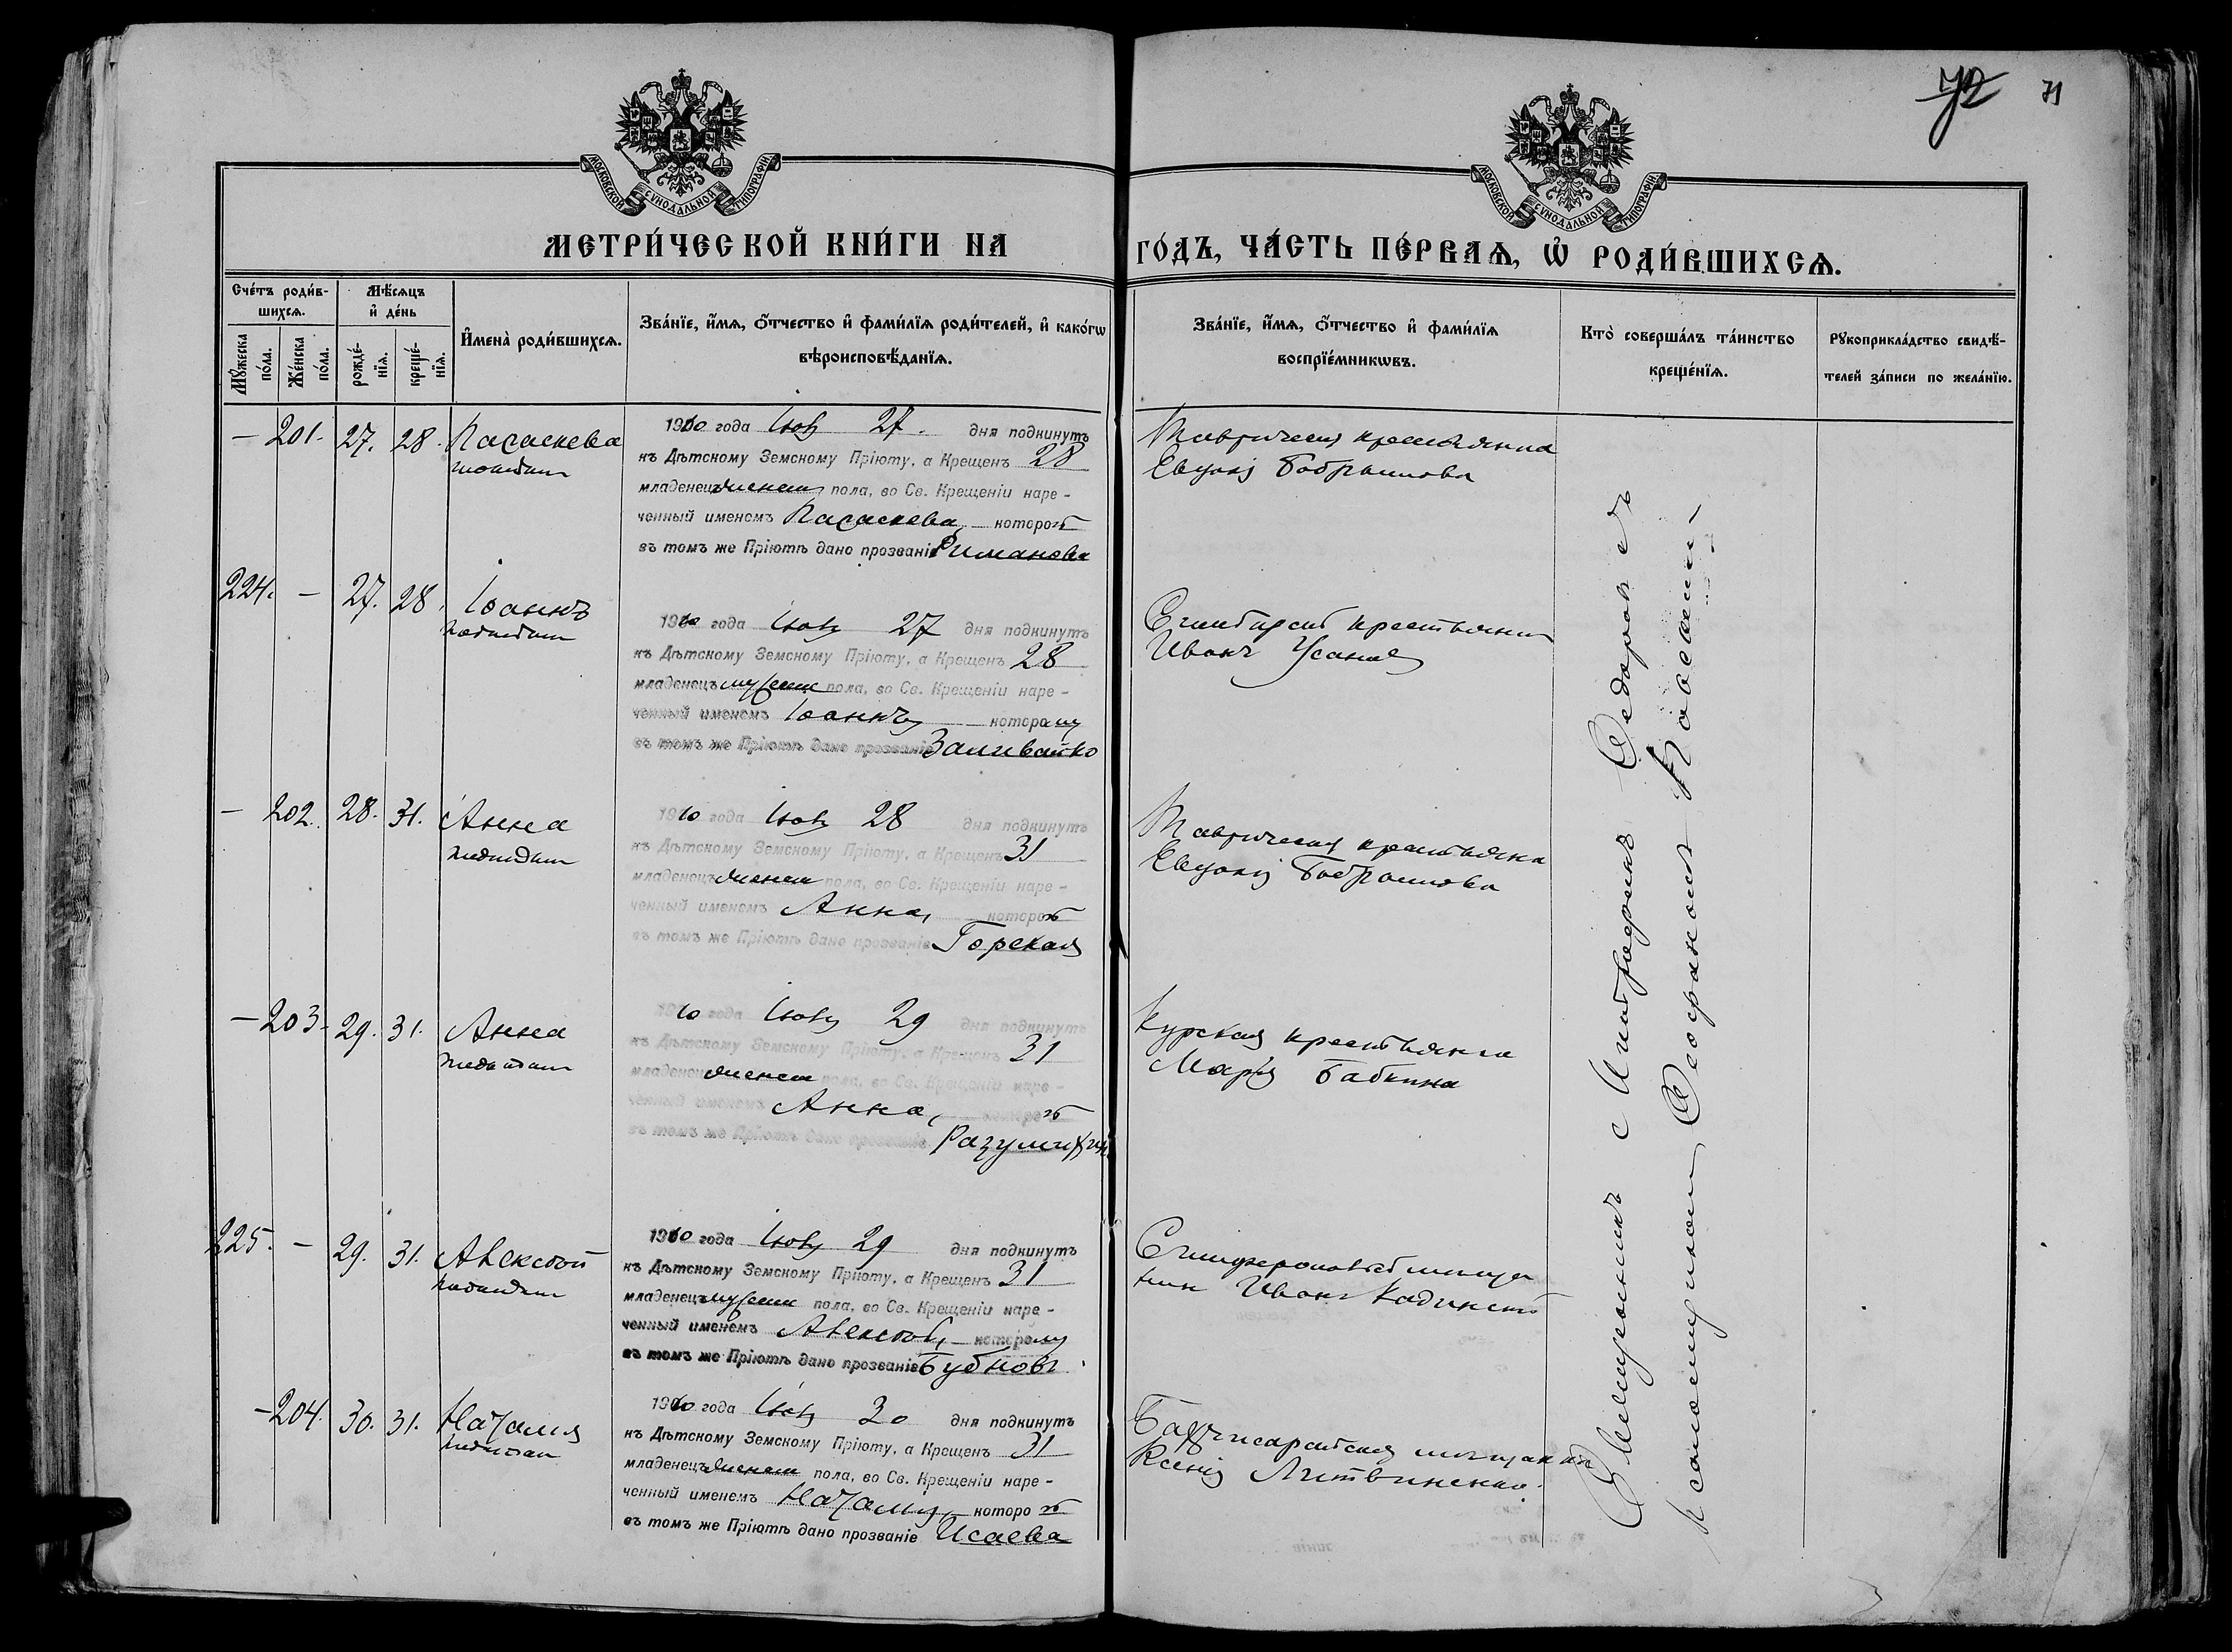 72 71
МОСКОВСКОЙ СѴНОДАЛЬНОЙ ТИПОГРАФІИ
МОСКОВСКОЙ СѴНОДАЛЬНОЙ ТИПОГРАФІИ
МЕТРИ́ЧЕСКОЙ КНИ́ГИ НА ГО́ДЪ, ЧА́СТЬ ПЕ́РВАѦ, Ѡ҆ РОДИ́ВШИХСѦ.
Сче́тъ роди́в-
шихсѧ.
Мꙋ́жеска
по́ла.
Же́нска
по́ла.
Мѣ́сѧцъ
и҆ де́нь
рожде́-
нїѧ.
креще́-
нїѧ.
И҆мена̀ роди́вшихсѧ.
Зва́нїе, и҆́мѧ, ѻ҆́тчество и҆ фами́лїѧ роди́телей, и҆ како́гѡ
вѣроисповѣ́данїѧ.
Зва́нїе, и҆́мѧ, ѻ҆́тчество и҆ фами́лїѧ
воспрїе́мникѡвъ.
Кто̀ соверша́лъ та́инство
креще́нїѧ.
Рꙋкоприкла́дство свидѣ́-
телей за́писи по жела́нїю.
— 201. 27. 28. Параскева
1910 года Іюля 27. дня подкинутъ
къ Дѣтскому Земскому Пріюту, а Крещенъ 28
младенецъ женска пола, во Св. Крещеніи наре-
ченный именемъ Параскева, — которой
въ томъ же Пріютѣ дано прозваніе Риманова
Таврическая крестьянка
Евдокія
224. — 27. 28. Іоаннъ
1910 года Іюля 27 дня подкинутъ
къ Дѣтскому Земскому Пріюту, а Крещенъ 28
младенецъ мужеска пола, во Св. Крещеніи наре-
ченный именемъ Іоаннъ, которому
въ томъ же Пріютѣ дано прозваніе Заливайко
крестьянин
Иванъ
— 202. 28. 31. Анна
1910 года Іюля 28 дня подкинутъ
къ Дѣтскому Земскому Пріюту, а Крещенъ 31
младенецъ женска пола, во Св. Крещеніи наре-
ченный именемъ Анна, которой
въ томъ же Пріютѣ дано прозваніе Горская
Таврическая крестьянка
Евдокія
— 203. 29. 31. Анна
1910 года Іюля 29 дня подкинутъ
къ Дѣтскому Земскому Пріюту, а Крещенъ 31
младенецъ женска пола, во Св. Крещеніи наре-
ченный именемъ Анна, которой
въ томъ же Пріютѣ дано прозваніе
Курская крестьянка
Марія Бабкина
225. — 29. 31. Алексѣй
1910 года Іюля 29 дня подкинутъ
къ Дѣтскому Земскому Пріюту, а Крещенъ 31
младенецъ мужеска пола, во Св. Крещеніи наре-
ченный именемъ Алексѣй, — которому
въ томъ же Пріютѣ дано прозваніе Бубновъ
Симферопольскій мѣща
нин Иванъ Кадинскій
— 204. 30. 31. Наталія
1910 года Іюля 30 дня подкинутъ
къ Дѣтскому Земскому Пріюту, а Крещенъ 31
младенецъ женска пола, во Св. Крещеніи наре-
ченный именемъ Наталія, которой
въ томъ же Пріютѣ дано прозваніе Исаева
Бахчисарайская мѣщанка
Ксенія Литвинская.
Священникъ Митрофанъ Ѳедоровъ съ
псаломщикомъ